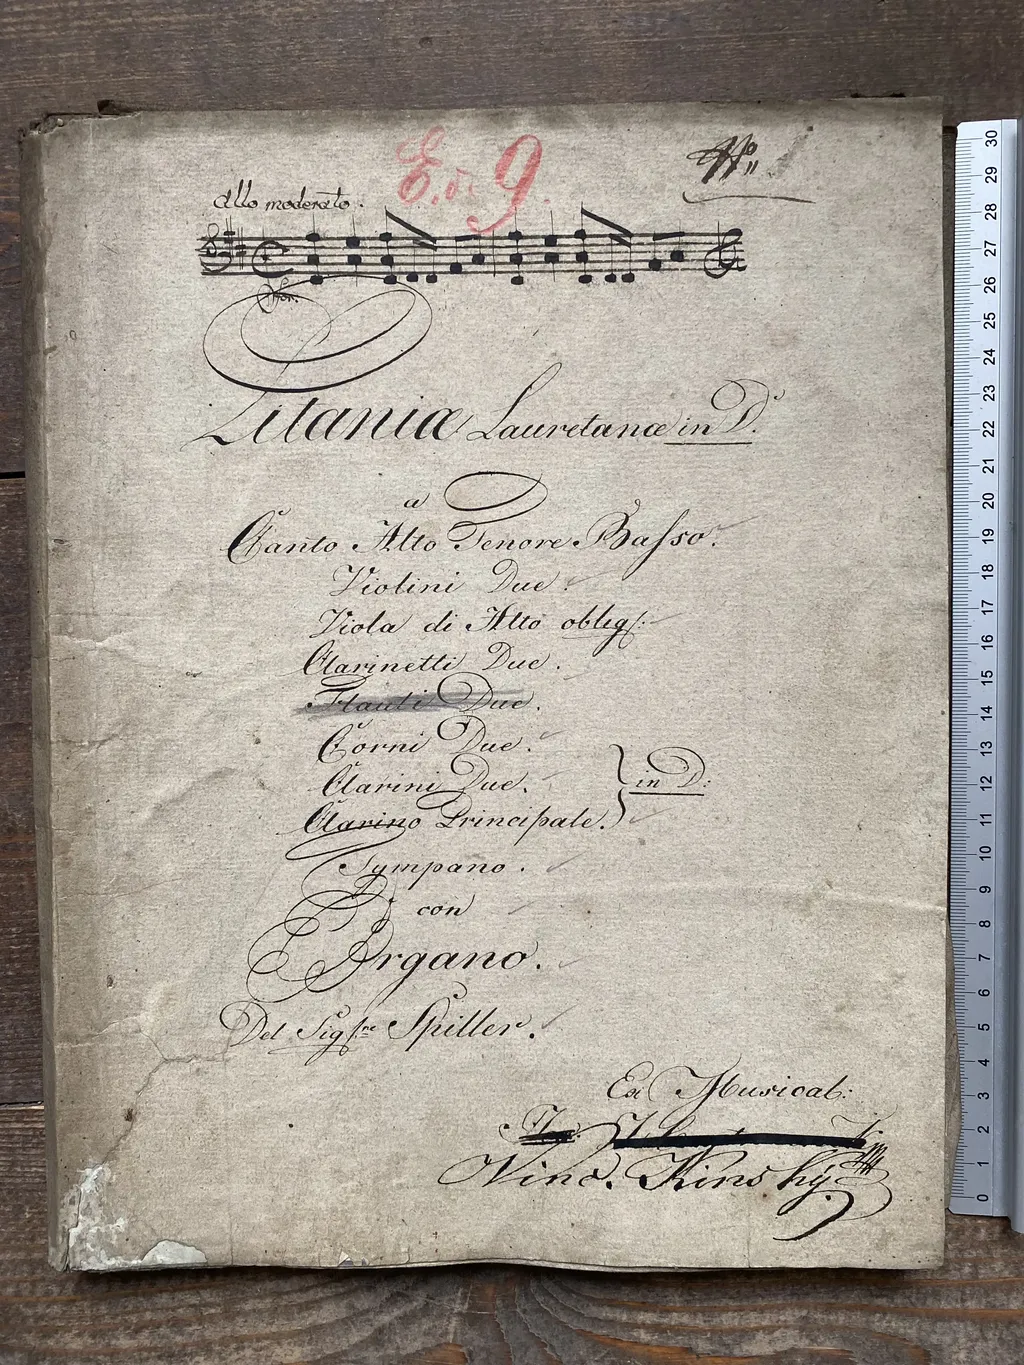 E. 9.
No
allo moderato.
for.
Litaniæ Lauretanæ in D.
a
Canto Alto Tenore Basso.
Violini Due.
Viola di Alto oblig:
Clarinetti Due.
Flauti Due.
Corni Due.
Clarini Due.
in D:
Clarino Principale.
Tympano.
con
Organo.
Del Sigre Spiller.
Ex Musical:
Vinc. Kinský
30
29
28
27
26
25
24
23
22
21
20
19
18
17
16
15
14
13
12
11
10
9
8
7
6
5
4
3
2
1
0